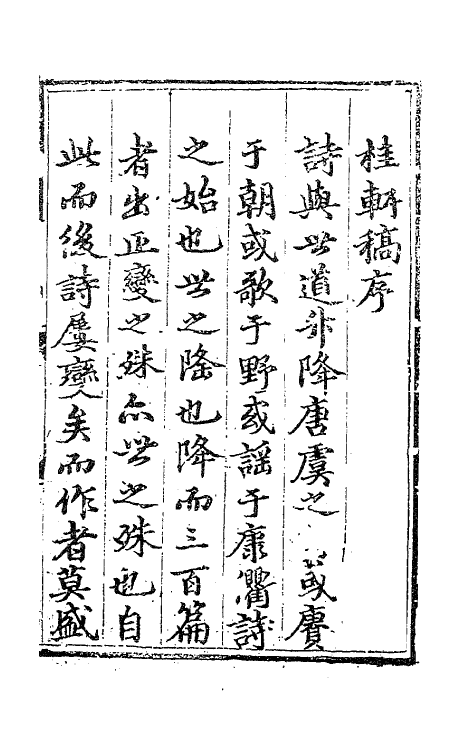 桂軒稿序
詩與世道升降唐虞之或賡
于朝或歌于野或謡于康衢詩
之始也世之隆也降而三百篇
者出正變之殊亦世之殊也自
此而後詩屢變矣而作者莫盛